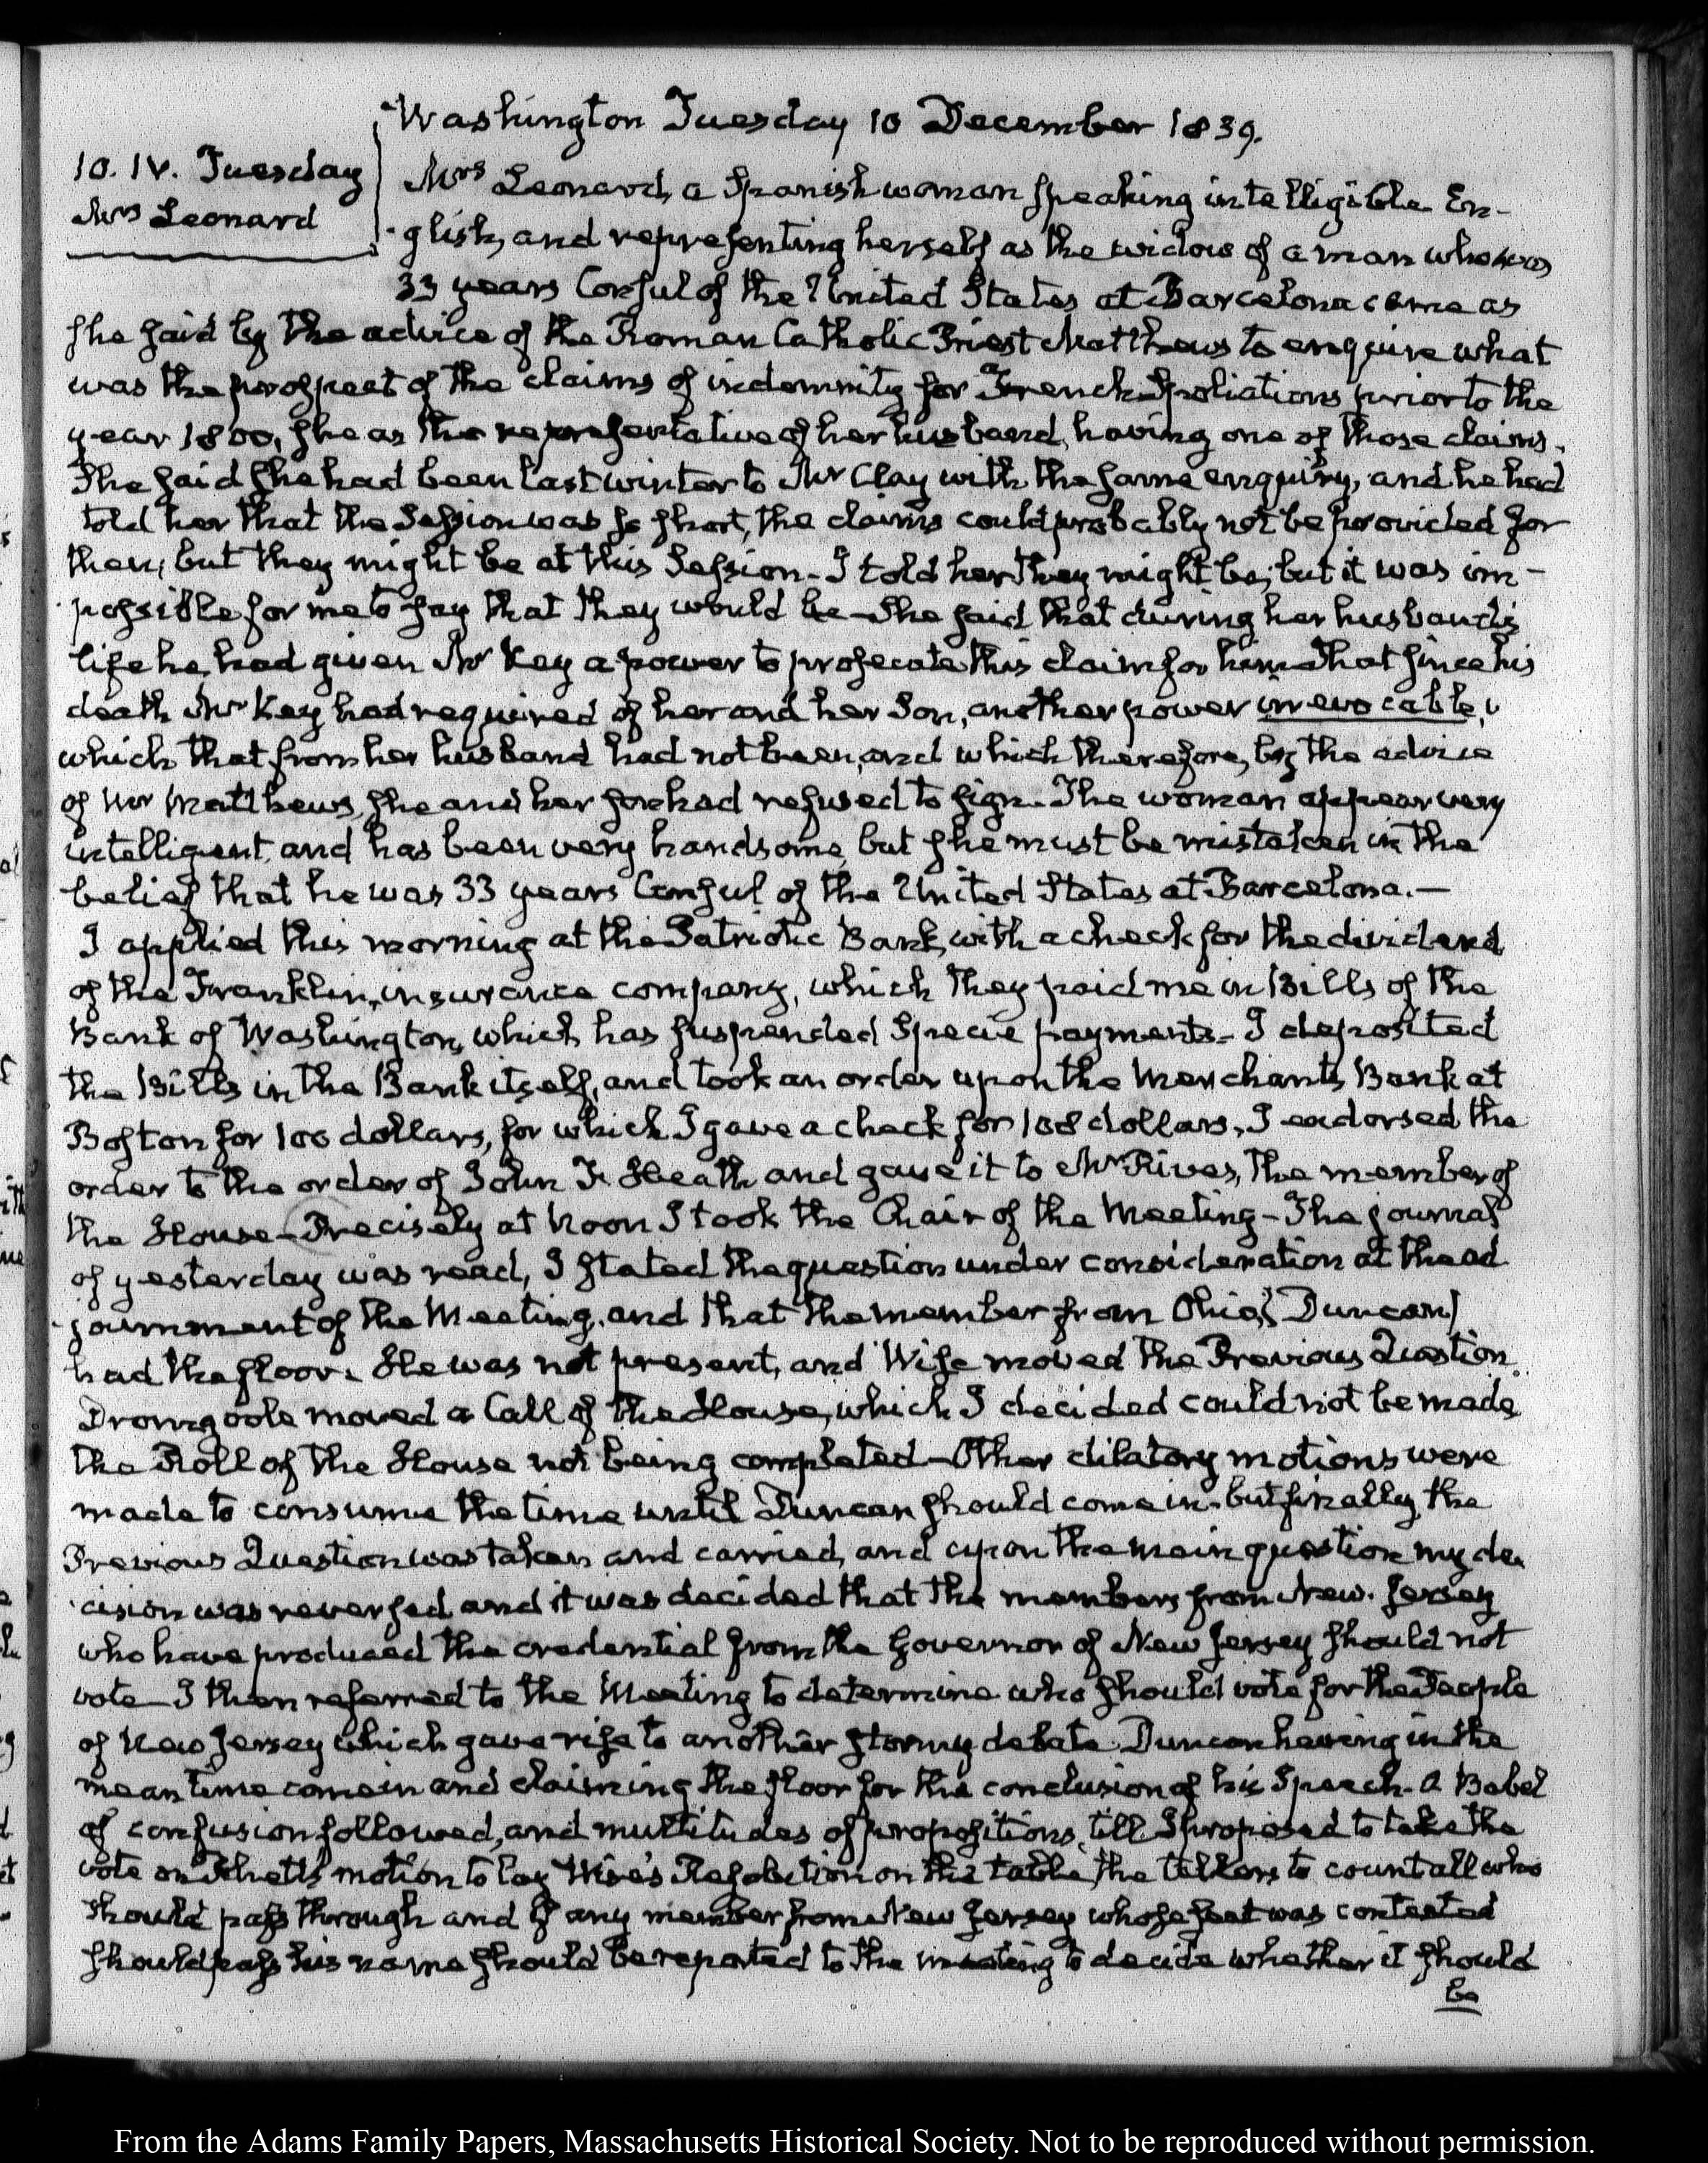 Washington Tuesday 10 December 1839.
10. IV. Tuesday
Mrs Leonard
Mrs Leonard, a Spanish woman speaking intelligible En-
-glish, and representing herself as the widow of a man who was
33 years Consul of the United States at Barcelona came as
she said by the advice of the Roman Catholic Priest Matthews to enquire what
was the prospect of the claims of indemnity for French Spoliations prior to the
year 1800, she as the representative of her husband, having one of those claims.
She said she had been last winter to Mr Clay with the same enquiry, and he had
told her that the Session was so short, the claims could probably not be provided for
then, but they might be at this Session. I told her they might be; but it was im-
possible for me to say that they would be - She said that during her husband's
life he had given Mr Key a power to prosecute this claim for him. That since his
death Mr Key had required of her and her Son, another power irrevocable,
which that from her husband had not been, and which therefore, by the advice
of Mr Matthews, she and her son had refused to sign. The woman appear very
intelligent, and has been very handsome, but she must be mistaken in the
belief that he was 33 years Consul of the United States at Barcelona.—
I applied this morning at the Patriotic Bank, with a check for the dividend
of the Franklin insurance company, which they paid me in Bills of the
Bank of Washington, which has suspended Specie payments - I deposited
the Bills in the Bank itself, and took an order upon the Merchants Bank at
Boston for 100 dollars, for which I gave a check for 108 dollars, I endorsed the
order to the order of John F. Heath and gave it to Mr Rives, the member of
the House - Precisely at Noon I took the Chair of the Meeting - The journal
of yesterday was read, I stated the question under consideration at the ad-
-journment of the Meeting, and that the member from Ohio (Duncan)
had the floor. He was not present, and Wise moved the Previous Question.
Dromgoole moved a Call of the House, which I decided could not be made,
the Roll of the House not being completed - Other dilatory motions were
made to consume the time until Duncan should come in. but finally, the
Previous Question was taken and carried, and upon the main question my de-
cision was reversed and it was decided that the members from New-Jersey
who have produced the credential from the Governor of New Jersey should not
vote - I then referred to the Meeting to determine who should vote for the People
of New Jersey which gave rise to another stormy debate Duncan having in the
mean time come in and claiming the floor for the conclusion of his Speech. A Babel
of confusion followed, and multitudes of propositions, till I proposed to take the
vote on Rhett's motion to lay Wise's Resolution on the table, the tellers to count all who
should pass through and if any member from New Jersey whose seat was contested
should pass his name should be reported to the meeting to decide whether it should
be
From the Adams Family Papers, Massachusetts Historical Society. Not to be reproduced without permission.